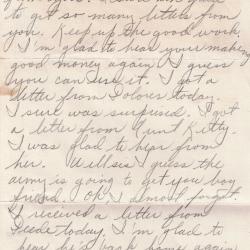 to get so many letters from
you. Keep up the good work.
I'm glad to hear your making
good money again I guess
you can use it. I got a
letter from Dolores today.
I sure was surprised. I got
a letter from Aunt Kitty.
I was glad to hear from
her. Well sis I guess the
army is going to get you boy
friend. Oh I almost forgot.
I received a letter from
today. I'm glad to
hear he's back home again